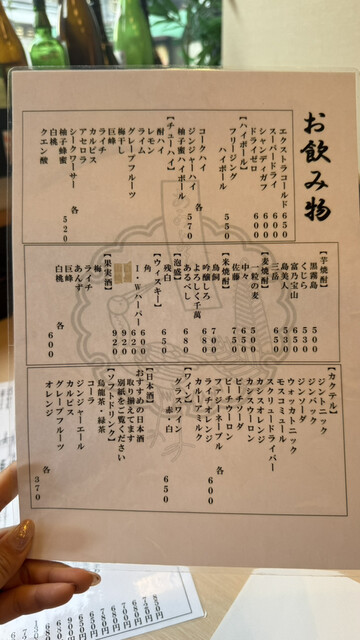 お飲み物
エクストラコールド 650
スーパードライ 600
シャンディガフ 600
ドライゼロ 600
【ハイボール】
フリージング
ハイボール 550
コークハイ
ジンジャーハイ
柚子蜜ハイボール
各 570
【チューハイ】
酎ハイ
レモン
ライム
グレープフルーツ
梅干し
巨峰
ライチ
カルピス
アセロラ
シークヮーサー
柚子蜂蜜
白桃
クエン酸
各 520
【芋焼酎】
黒霧島 500
くじら 530
富乃宝山 650
島美人 530
三岳 650
【麦焼酎】
一粒の麦 500
中々 650
佐藤 750
【米焼酎】
鳥飼 700
吟醸しろ 650
よろしく千萬
あるべし 650
【泡盛】
残白 600
【ウィスキー】
角 600
I・Wハーパー 920
【果実酒】
梅
ライチ
あんず
巨峰
白桃
各 600
【カクテル】
ジントニック
ジンバック
ジンソーダ
ウォッカトニック
モスコミュール
スクリュードライバー
カシスオレンジ
カシスウーロン
ピーチソーダ
ピーチウーロン
ファジーネーブル
ライチオレンジ
カルーアミルク
各 600
【ワイン】
グラスワイン
赤・白 650
【日本酒】
おすすめの日本酒
取り揃えてます
別紙をご覧ください
【ソフトドリンク】
烏龍茶・緑茶
コーラ
ジンジャーエール
カルピス
グレープフルーツ
オレンジ
各 370